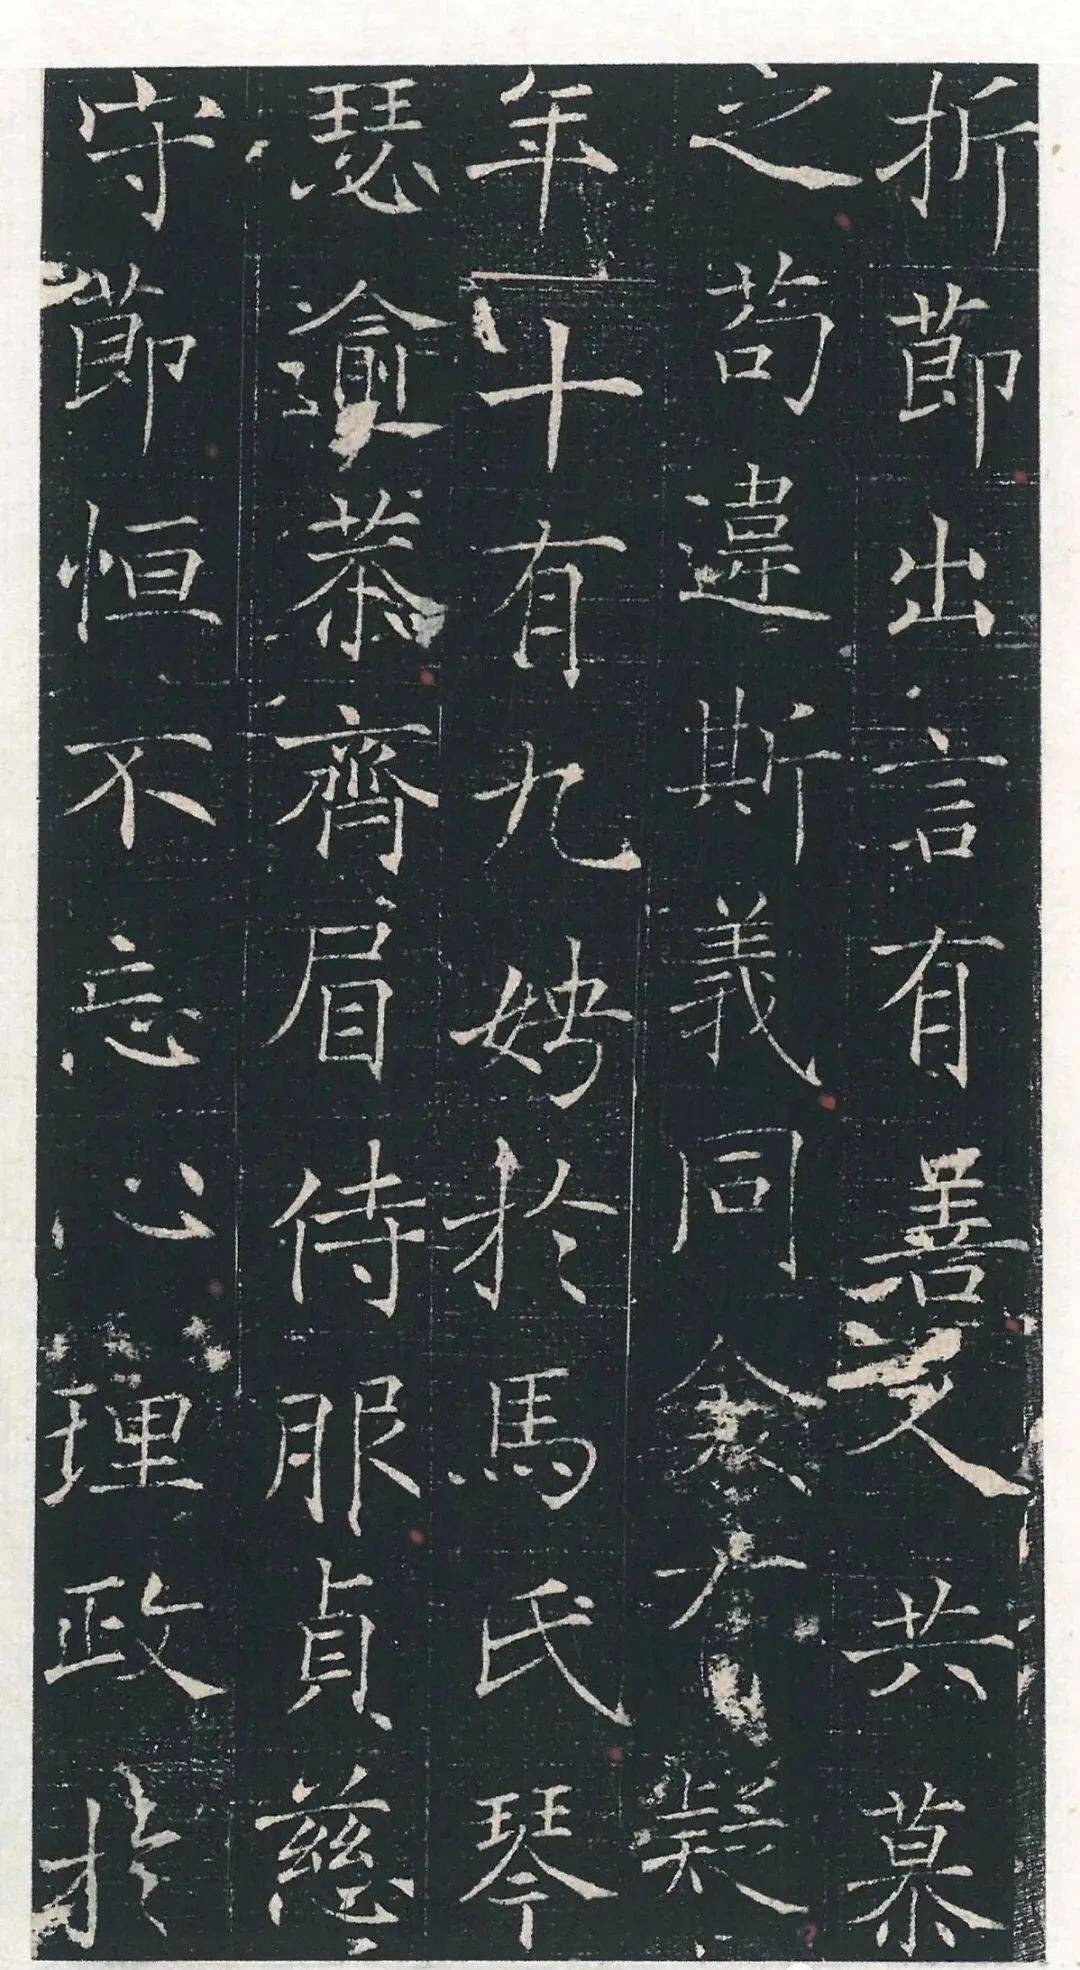 折節出言有善共慕
之苟違斯義同衾疑
年十有九娉於馬氏琴
瑟逾恭齊眉侍服貞慈
守節恒不忘心理政於